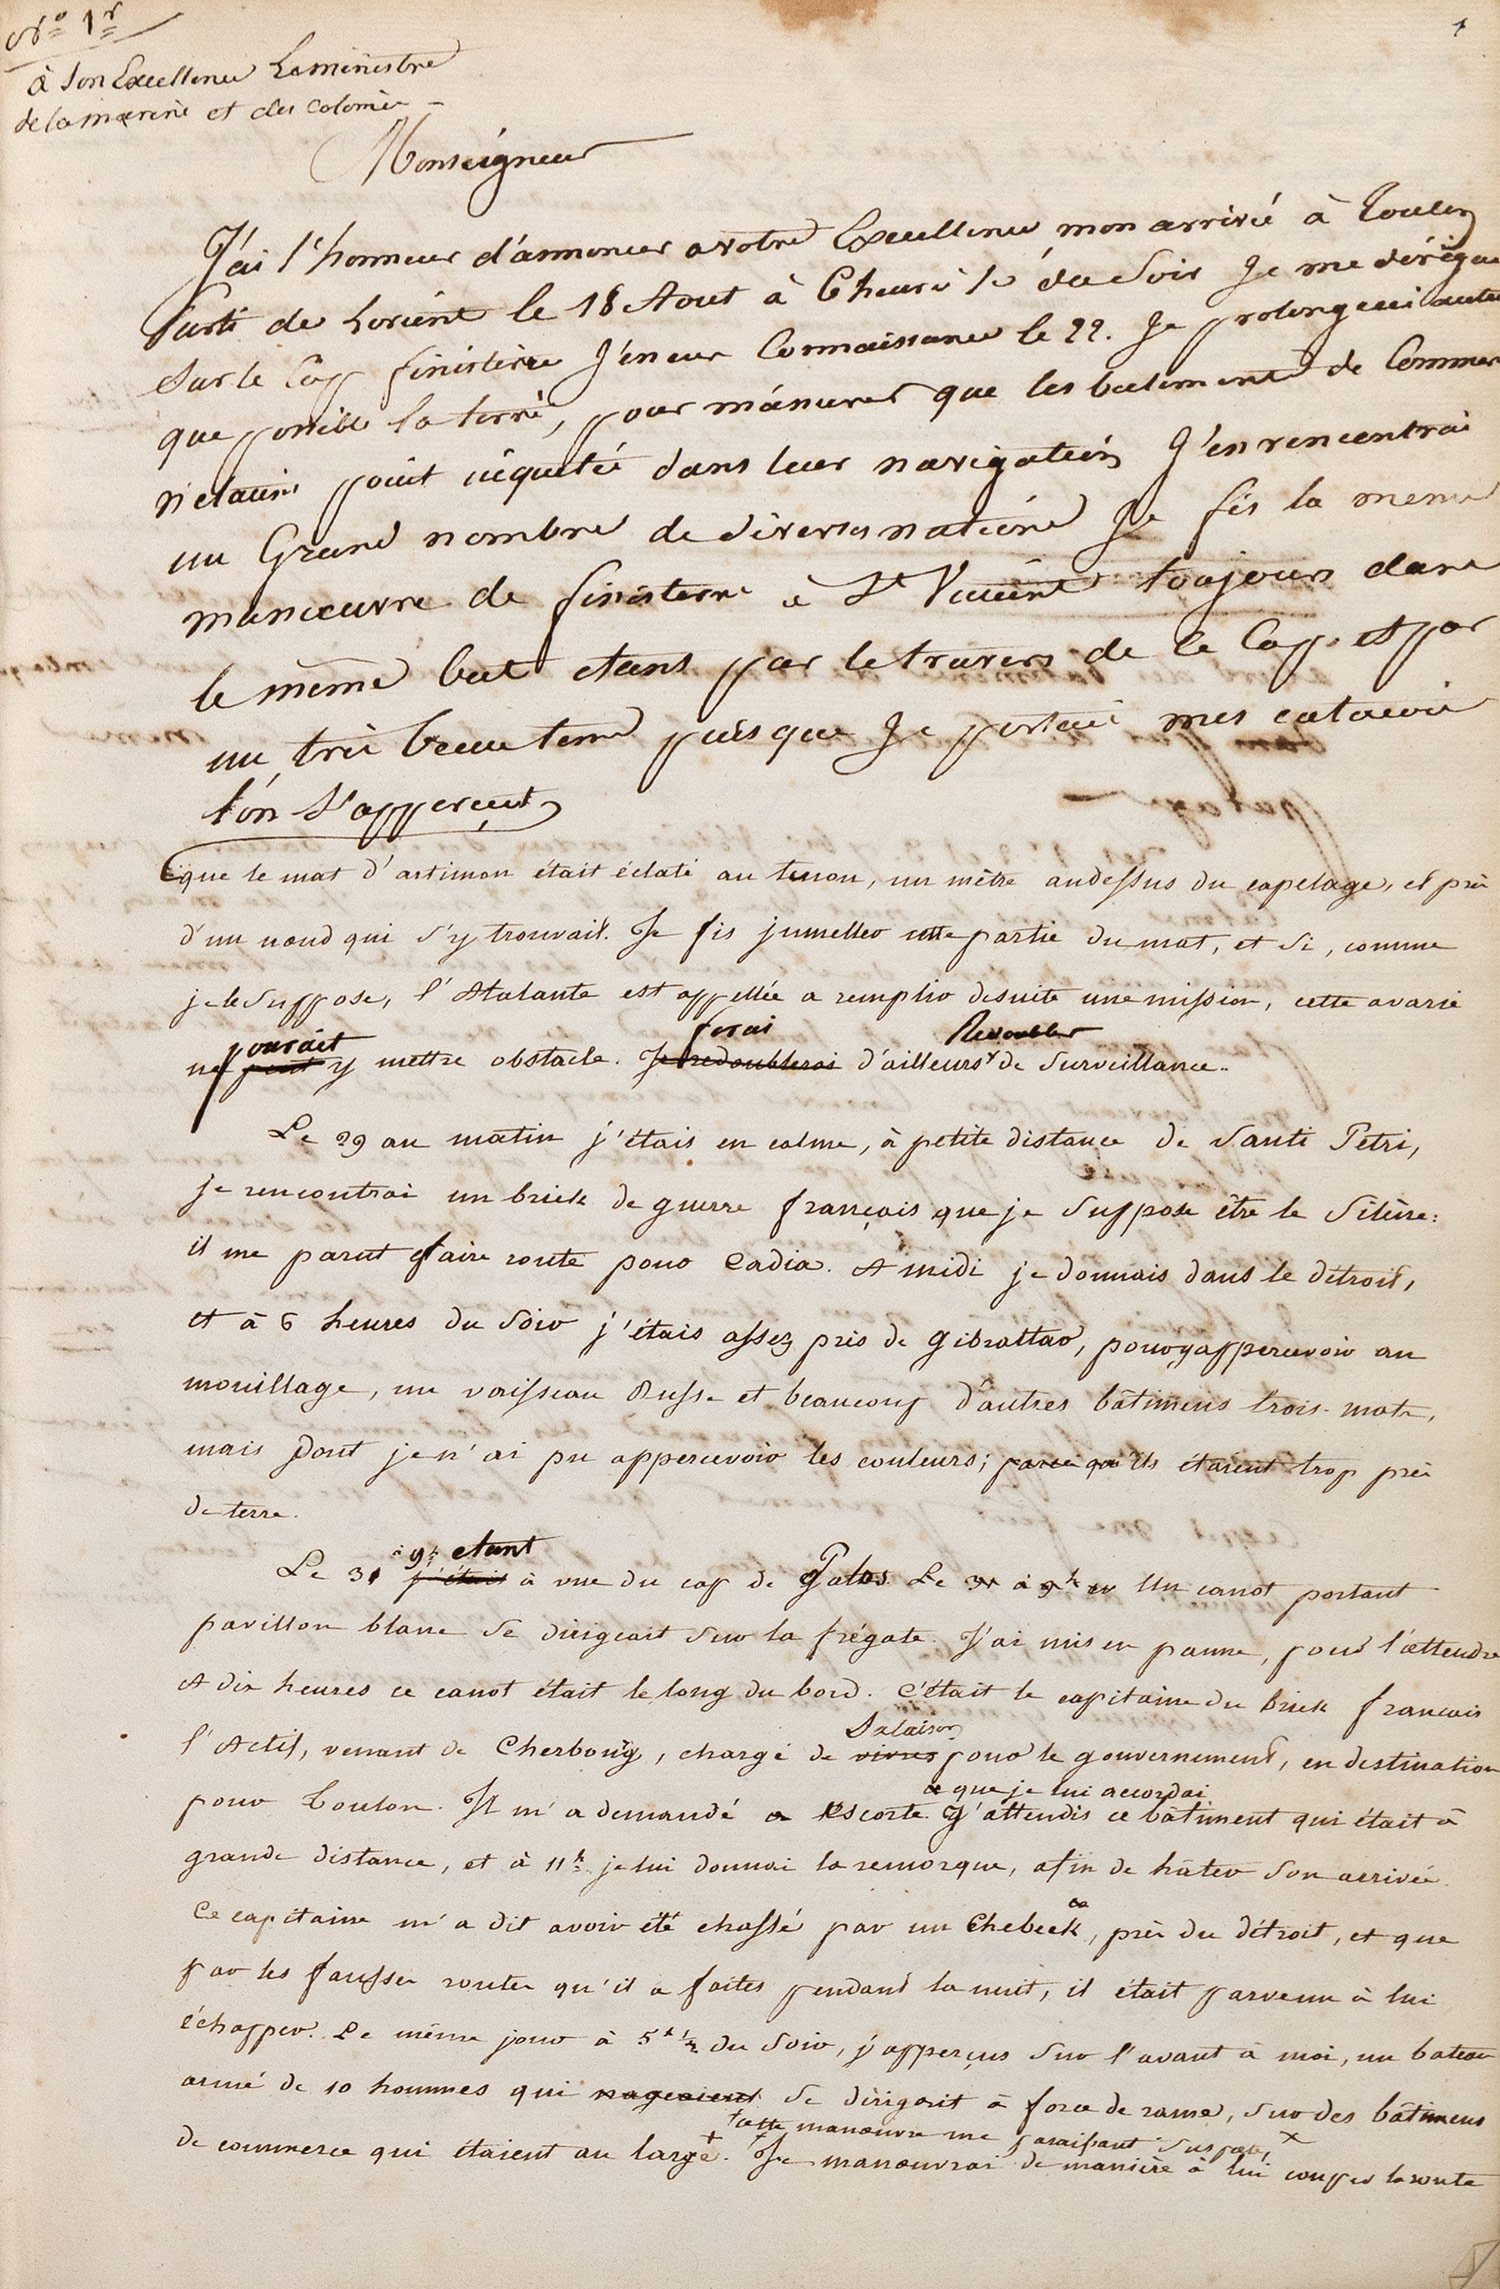 No 1r
1
à Son Excellence Leministre
delamarine et des colonies
Monseigneur
J'ai l'honneur d'annoncer avotre Excellence mon arrivé à Toulon
Parti de Lorient le 18 Aout à 6 heures du Soir Je me dirigai
Sur le Cap finisterre J'en eus Connaissance le 22. Je prolongeai autant
que possible la terre, pour m'assurer que les batiments de Commer
n'etaient point iquietés dans leur navigation J'en rencontrai
un Grand nombre de diverses nations Je fis la meme
manœuvre de finisterre a St Vincent toujours dans
le même but etant par le travers de ce Cap. et par
un très beau tems puisque Je portais mes catacois
l'on S'apperçut
que le mat d'artimon était éclaté au tenon, un mètre audessus du capelage, et près
d'un nœud qui s'y trouvait. Je fis jumeller cette partie du mat, et Si, comme
je le Suppose, l'Atalante est appellée a remplir desuite une mission, cette avarie
pourait ferai Redoubler
ne peut y mettre obstacle. Je redoublerai d'ailleurs de Surveillance.
Le 29 au matin j'étais en calme, à petite distance de Santi Petri,
je rencontrai un brick de guerre français que je Suppose être le Silène:
il me parut faire route pour Cadix. A midi je donnais dans le détroit,
et à 6 heures du Soir j'étais assez près de Gibraltar, pour y appercevoir au
mouillage, un vaisseau Russe et beaucoup d'autres bâtimens trois-mats,
mais dont je n'ai pu appercevoir les couleurs; parce qu'ils étaient trop près
de terre.
à 9h etant
Le 31 j'étais à vue du cap de Gates. Le 31 à 9h un canot portant
pavillon blanc se dirigeait sur la frégate. J'ai mis en panne, pour l'attendre
A dix heures ce canot était le long du bord. C'était le capitaine du brick français
Salaison
l'Actif, venant de Cherbourg, chargé de vivres pour le gouvernement, en destination
ce que je lui accordai
pour Toulon. Il m'a demandé escorte. J'attendis ce bâtiment qui était à
grande distance, et à 11h je lui donnai la remorque, afin de hâter Son arrivée.
Ce capitaine m'a dit avoir été chassé par un Chebeck, près du détroit, et que
par les fausses routes qu'il a faites pendant la nuit, il était parvenu à lui
échapper. Le même jour à 5h 1/2 du Soir, j'apperçus Sur l'avant à moi, un bateau
armé de 10 hommes qui nageaient Se dirigait à force de rame, Sur des bâtimens
+ cette manœuvre me paraissant Suspecte, ×
de commerce qui étaient au large. + Je manœuvrai de manière à lui couper la route